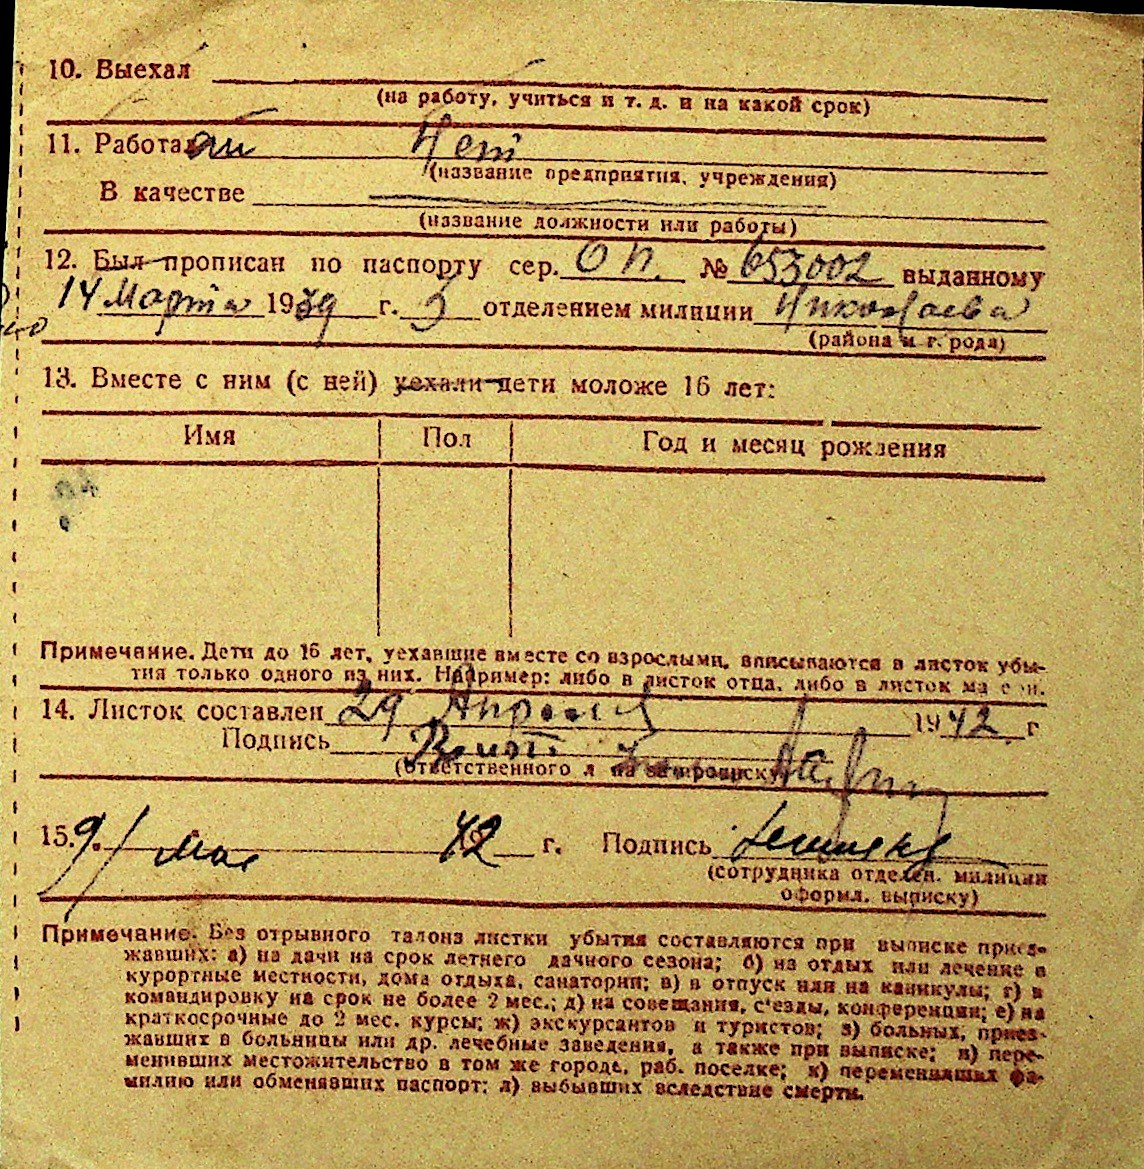 10. Выехал
(на работу, учиться и т. д. и на какой срок)
11. Работа Нет
(название предприятия, учреждения)
В качестве
(название должности или работы)
12. Был прописан по паспорту сер. О П. № 653002 выданному
14 Марта 1939 г. 5 отделением милиции Николаева
(района и г. рода)
13. Вместе с ним (с ней) уехали дети моложе 16 лет:
Имя Пол Год и месяц рождения
Примечание. Дети до 16 лет, уехавшие вместе со взрослыми, вписываются в листок убы-
тия только одного из них. Например: либо в листок отца, либо в листок ма е ри.
14. Листок составлен 29 Апреля 1942 г
Подпись
(ответственного л на выписку)
15. 9/ Мая 42 г. Подпись
(сотрудника отделен. милиции
оформл. выписку)
Примечание. Без отрывного талона листки убытия составляются при выписке приез-
жавших: а) на дачи на срок летнего дачного сезона; б) на отдых или лечение в
курортные местности, дома отдыха, санатории; в) в отпуск или на каникулы; г) в
командировку на срок не более 2 мес.; д) на совещания, с'езды, конференции; е) на
краткосрочные до 2 мес. курсы; ж) экскурсантов и туристов; з) больных, приез-
жавших в больницы или др. лечебные заведения, а также при выписке; и) пере-
менивших местожительство в том же городе, раб. поселке; к) переменивших фа-
милию или обменявших паспорт; л) выбывших вследствие смерти.